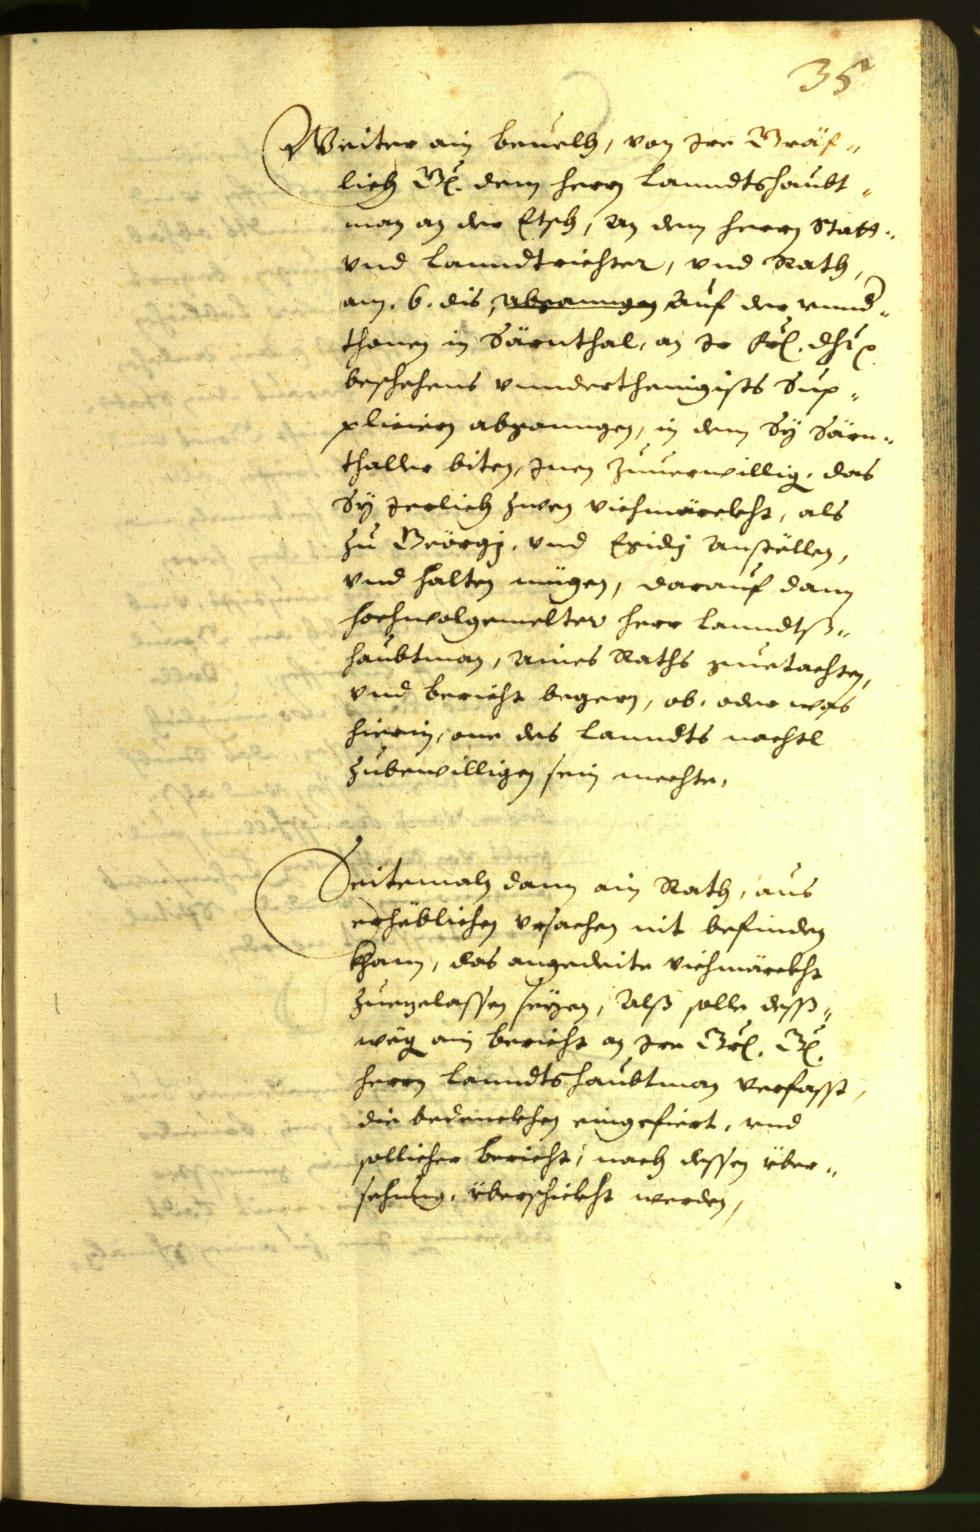 35
Weiter ain beuelh, von Irr Gräf„
lich G. dem herrn Lanndtshaubt„
man an der Etsch, an dem herrn Statt„
vnd Lanndtrichter, vnd Rath,
am. 6. dis, abganngen, auf der vnnd„
thonen in Särnthal, an Ir
beschehens vnnderthenigists Sup„
plicieren abganngen, in dem Sÿ Särn„
thaller biten, Inen zuuerwillig, das
Sÿ Jerlich zwen viehmärckht, als
zu Geörgj, vnd Egidj anstellen,
vnd halten mügen, darauf dann
hochwolgemelter herr Lanndtß„
haubtman, aines Raths guetachten,
vnd bericht begern, ob, oder was
hierin, one des Lanndts nachtl
zubewilligen sein mechte,
Seitemaln dann ain Rath, aus
erhäblichen vrsachen nit befinden
khann, das angedeite viehmärckht
zuegelassen seyen, Alß solle deß„
weg ain bericht an Irr Grl. G.
herrn Lanndtshaubtman verfasst,
die bedenckhen eingefiert, vnd
sollicher bericht, nach dessen über„
sehung, überschickht werden,